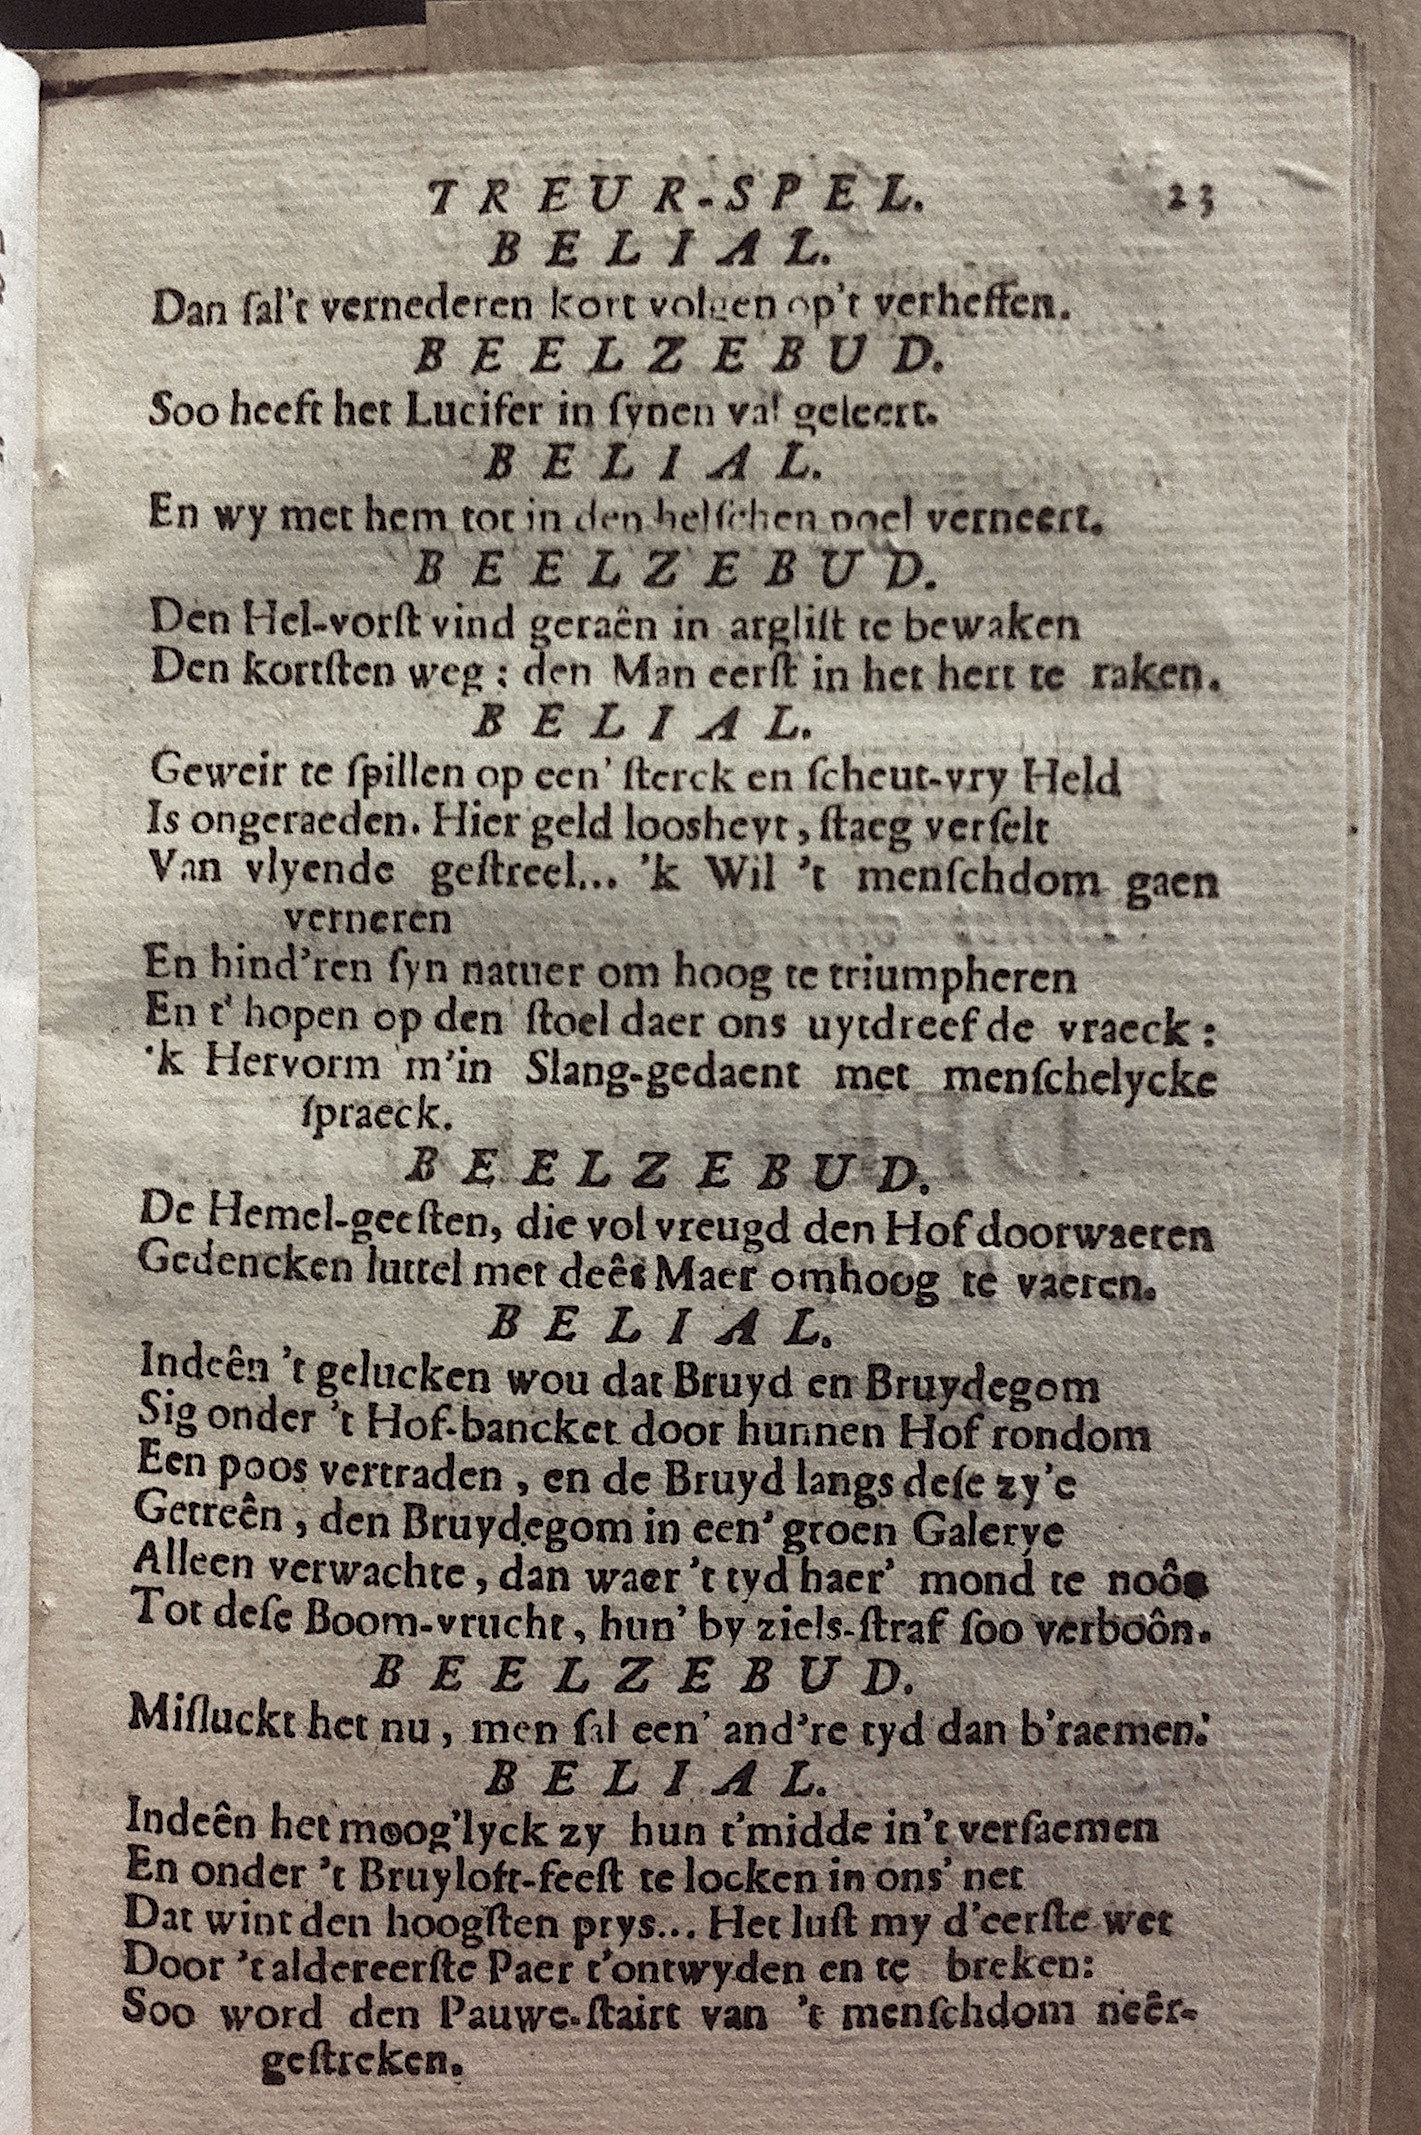 TREUR-SPEL. 23
BELIAL.
Dan ſal't vernederen kort volgen op't verheffen.
BEELZEBUD.
Soo heeft het Lucifer in ſynen val geleert.
BELIAL.
En wy met hem tot in den helſchen poel verneert.
BEELZEBUD.
Den Hel-vorſt vind geraên in argliſt te bewaken
Den kortſten weg : den Man eerſt in het hert te raken.
BELIAL.
Geweir te ſpillen op een' ſterck en ſcheut-vry Held
Is ongeraeden. Hier geld loosheyt, ſtaeg verſelt
Van vlyende geſtreel... 'k Wil 't menſchdom gaen
verneren
En hind'ren ſyn natuer om hoog te triumpheren
En t' hopen op den ſtoel daer ons uytdreef de vraeck :
'k Hervorm m'in Slang-gedaent met menſchelycke
ſpraeck.
BEELZEBUD.
De Hemel-geeſten, die vol vreugd den Hof doorwaeren
Gedencken luttel met deês Maer omhoog te vaeren.
BELIAL.
Indeên 't gelucken wou dat Bruyd en Bruydegom
Sig onder 't Hof-bancket door hunnen Hof rondom
Een poos vertraden, en de Bruyd langs deſe zy'e
Getreên, den Bruydegom in een' groen Galerye
Alleen verwachte, dan waer 't tyd haer' mond te
Tot deſe Boom-vrucht, hun' by ziels-ſtraf ſoo verboôn.
BEELZEBUD.
Miſluckt het nu, men ſal een' and're tyd dan b'raemen.
BELIAL.
Indeên het moog'lyck zy hun t'midde in't verſaemen
En onder 't Bruyloft-feeſt te locken in ons' net
Dat wint den hoogſten prys... Het luſt my d'eerſte wet
Door 't aldereerſte Paer t'ontwyden en te breken:
Soo word den Pauwe-ſtairt van 't menſchdom neêr-
geſtreken.